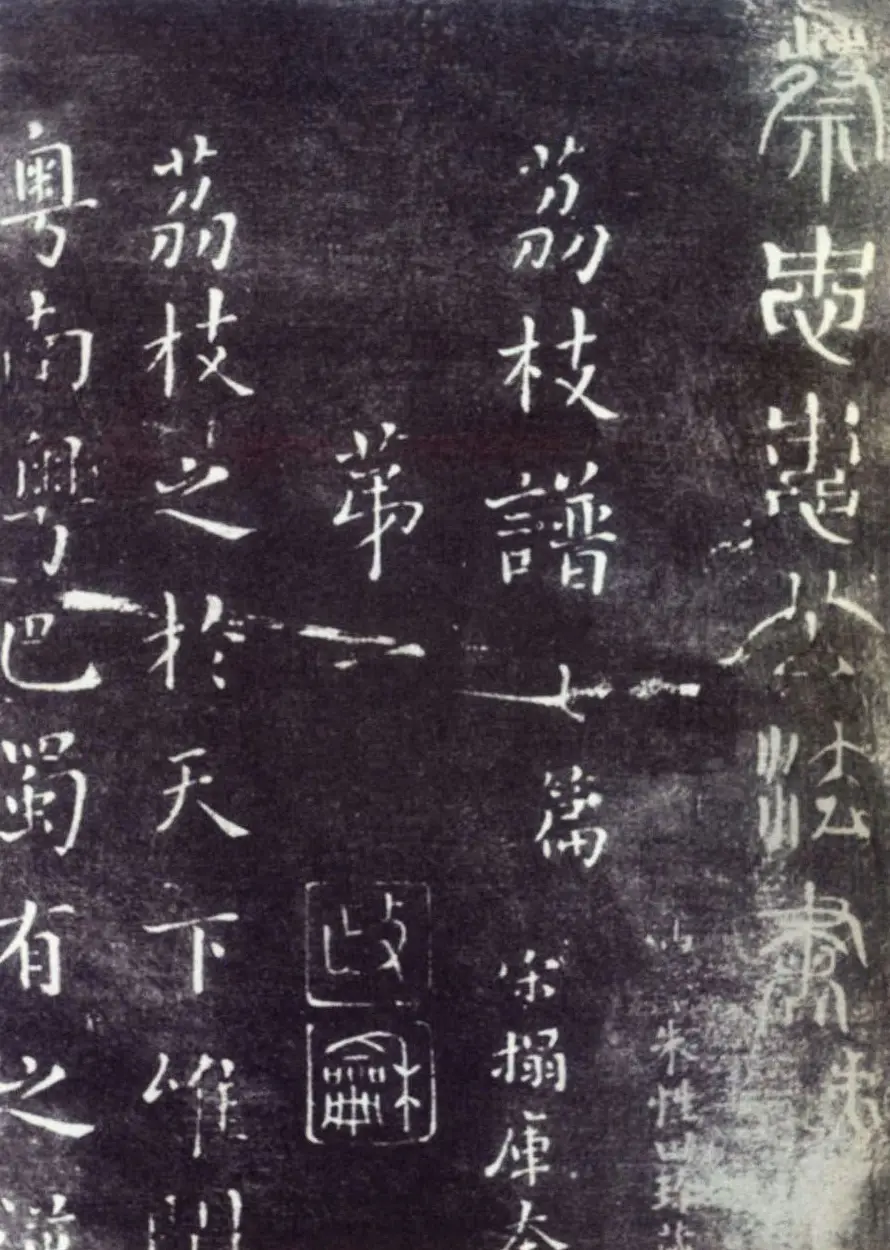 蔡忠惠公法書
荔枝譜七篇
宋搨庫本
苐一
政龢
荔枝之於天下唯閩
粵南粵巴蜀有之